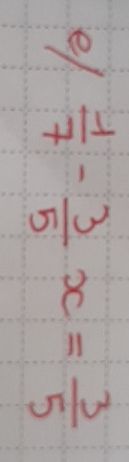 e/ 1/7 - 3/5 x = 3/5